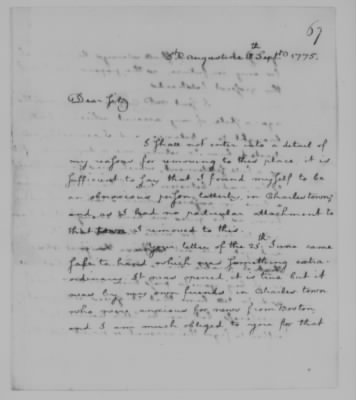 67
St. Augustine Septr. 1775.
Dear
I shall not enter into a detail of
my reasons for removing to this place, it is
sufficient to say that I found myself to be
an obnoxious person latterly in Charlestown;
and, as I had no particular attachment to
that I removed to this.
Your letter of the 25th June came
safe to hand which was something extra-
ordinary. It was opened it is true but it
was by my own friends in Charlestown
who were anxious for news from Boston
and I am much obliged to you for that